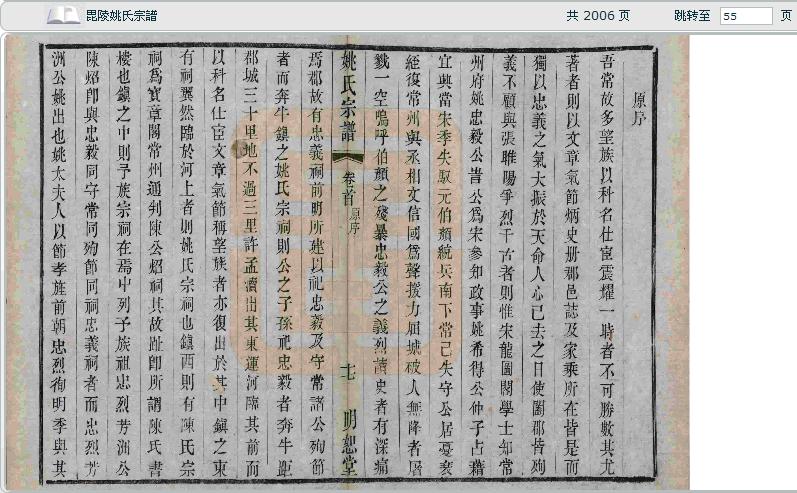 毘陵姚氏宗譜
共 2006 页
跳转至 55 页
原序
吾常故多望族以科名仕宦震耀一時者不可勝數其尤
著者則以文章氣節炳史册郡邑誌及家乘所在皆是而
獨以忠義之氣大振於天命人心已去之日使闔郡皆殉
義不顧與張睢陽爭烈千古者則惟宋龍圖閣學士知常
州府姚忠毅公訔公爲宋參知政事姚希得公仲子占籍
宜興當宋季失馭元伯顏統兵南下常已失守公居憂衰
絰復常州與丞相文信國爲聲援力屈城破人無降者屠
戮一空嗚呼伯顏之殘暴忠毅公之義烈讀史者有深痛
姚氏宗譜
卷首
原序
七
明恕堂
焉郡故有忠義祠前明所建以祀忠毅及守常諸公殉節
者而奔牛鎮之姚氏宗祠則公之子孫祀忠毅者奔牛距
郡城三十里地不過三里許孟瀆出其東運河臨其前而
以科名仕宦文章氣節稱望族者亦復出於其中鎮之東
有祠翼然臨於河上者則姚氏宗祠也鎮西則有陳氏宗
祠爲寶章閣常州通判陳公炤祠其故趾卽所謂陳氏書
樓也鎮之中則予族宗祠在焉中列予族祖忠烈芳洲公
陳炤卽與忠毅同守常同殉節同祠忠義祠者而忠烈芳
洲公姚出也姚太夫人以節孝旌前朝忠烈徇明季與其